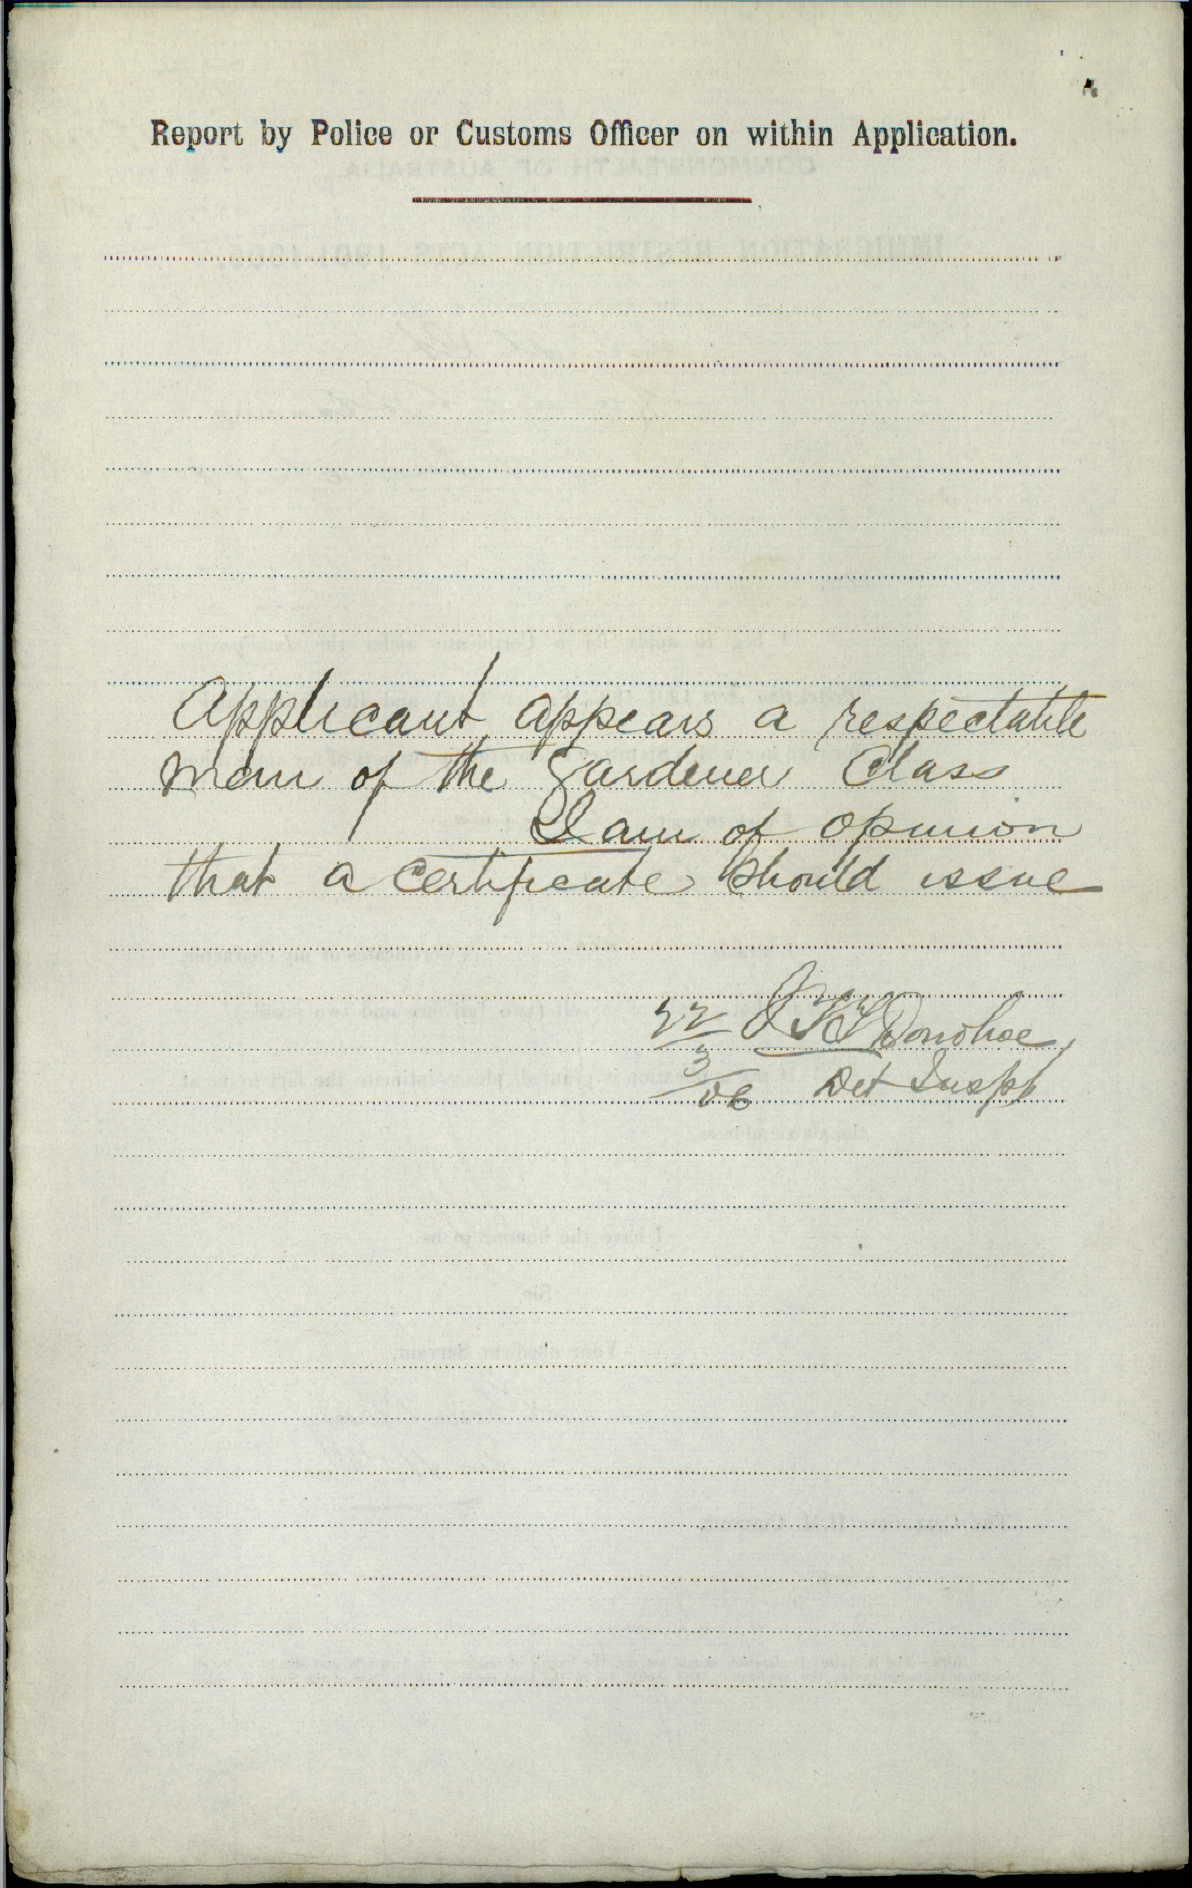 Report by Police or Customs Officer on within Application.
Applicant appears a respectable
man of the gardener Class
I am of opinion
that a certificate should issue
22 Donohoe
3
06 Det Inspr